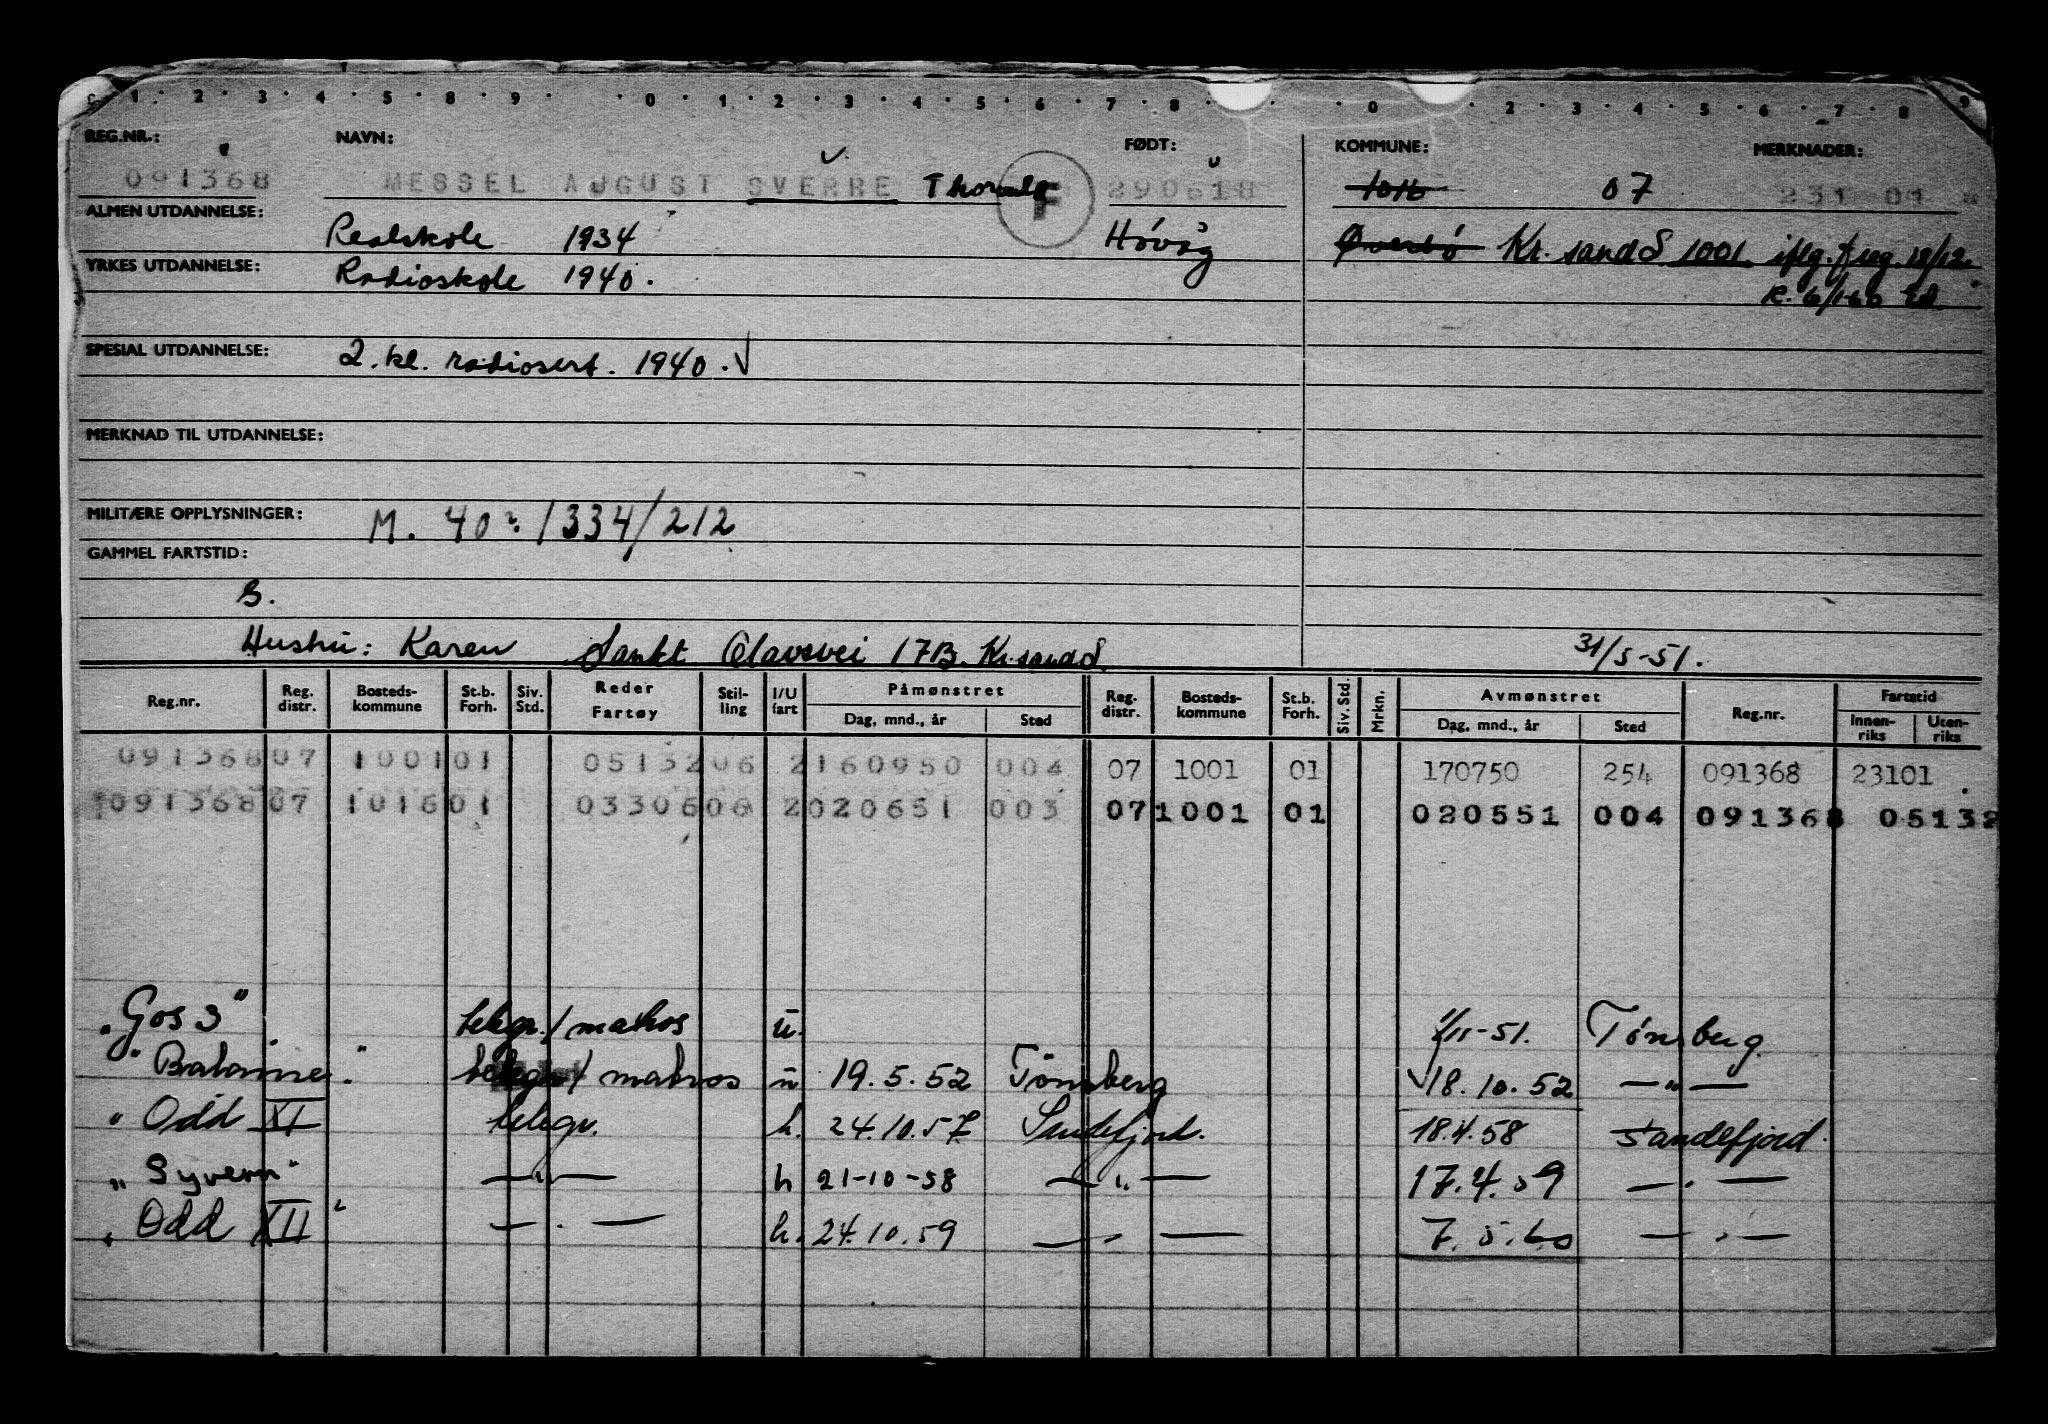 C 1 · 2 · 3 · 4 · 5 · 8 · 9 · 0 · 1 · 2 · 3 · 4 · 5 · 6 · 7 · 8 · 0 · 2 · 3 · 4 · 5 · 6 · 7 · 8 9
REG.NR.: NAVN: FØDT: KOMMUNE: MERKNADER:
091368 MESSEL AUGUST SVERRE F 290618 1016 07 231 01
ALMEN UTDANNELSE: Realskole 1934 Høvåg Øverbø Kr. sand S. 1001 iflg. 18/12
YRKES UTDANNELSE: Radioskole 1940.
SPESIAL UTDANNELSE: 2. kl. radiosert. 1940.
MERKNAD TIL UTDANNELSE:
MILITÆRE OPPLYSNINGER: M. 40: 1334/212
GAMMEL FARTSTID:
S.
Hustru: Karen Sankt Olavsvei 17B. Kr.sand S. 31/5-51.
Reg.nr. Reg. distr. Bosteds-kommune St.b. Forh. Siv. Std. Reder Fartøy Stil-ling I/U fart Påmønstret Dag, mnd., år Sted Reg. distr. Bosteds-kommune St.b. Forh. Siv. Std. Mrkn. Avmønstret Dag, mnd., år Sted Reg.nr. Fartstid Innen-riks Uten-riks
091368 07 1001 01 05132 06 2 160950 004 07 1001 01 170750 254 091368 23101
091368 07 1016 01 03306 06 2 020651 003 07 1001 01 020551 004 091368 05132
"Gos 3" telegr./matros u. 1/11-51. Tønsberg
"Balamine" telegr/matros u 19.5.52 Tønsberg 18.10.52 — " —
"Odd XI telegr. h. 24.10.57 Sandefjord. 18.4.58 Sandefjord.
"Syvern" — " — h 21-10-58 — " — 17.4.59 — " —
"Odd XII" — " — h. 24.10.59 — " — 7.5.60 — " —